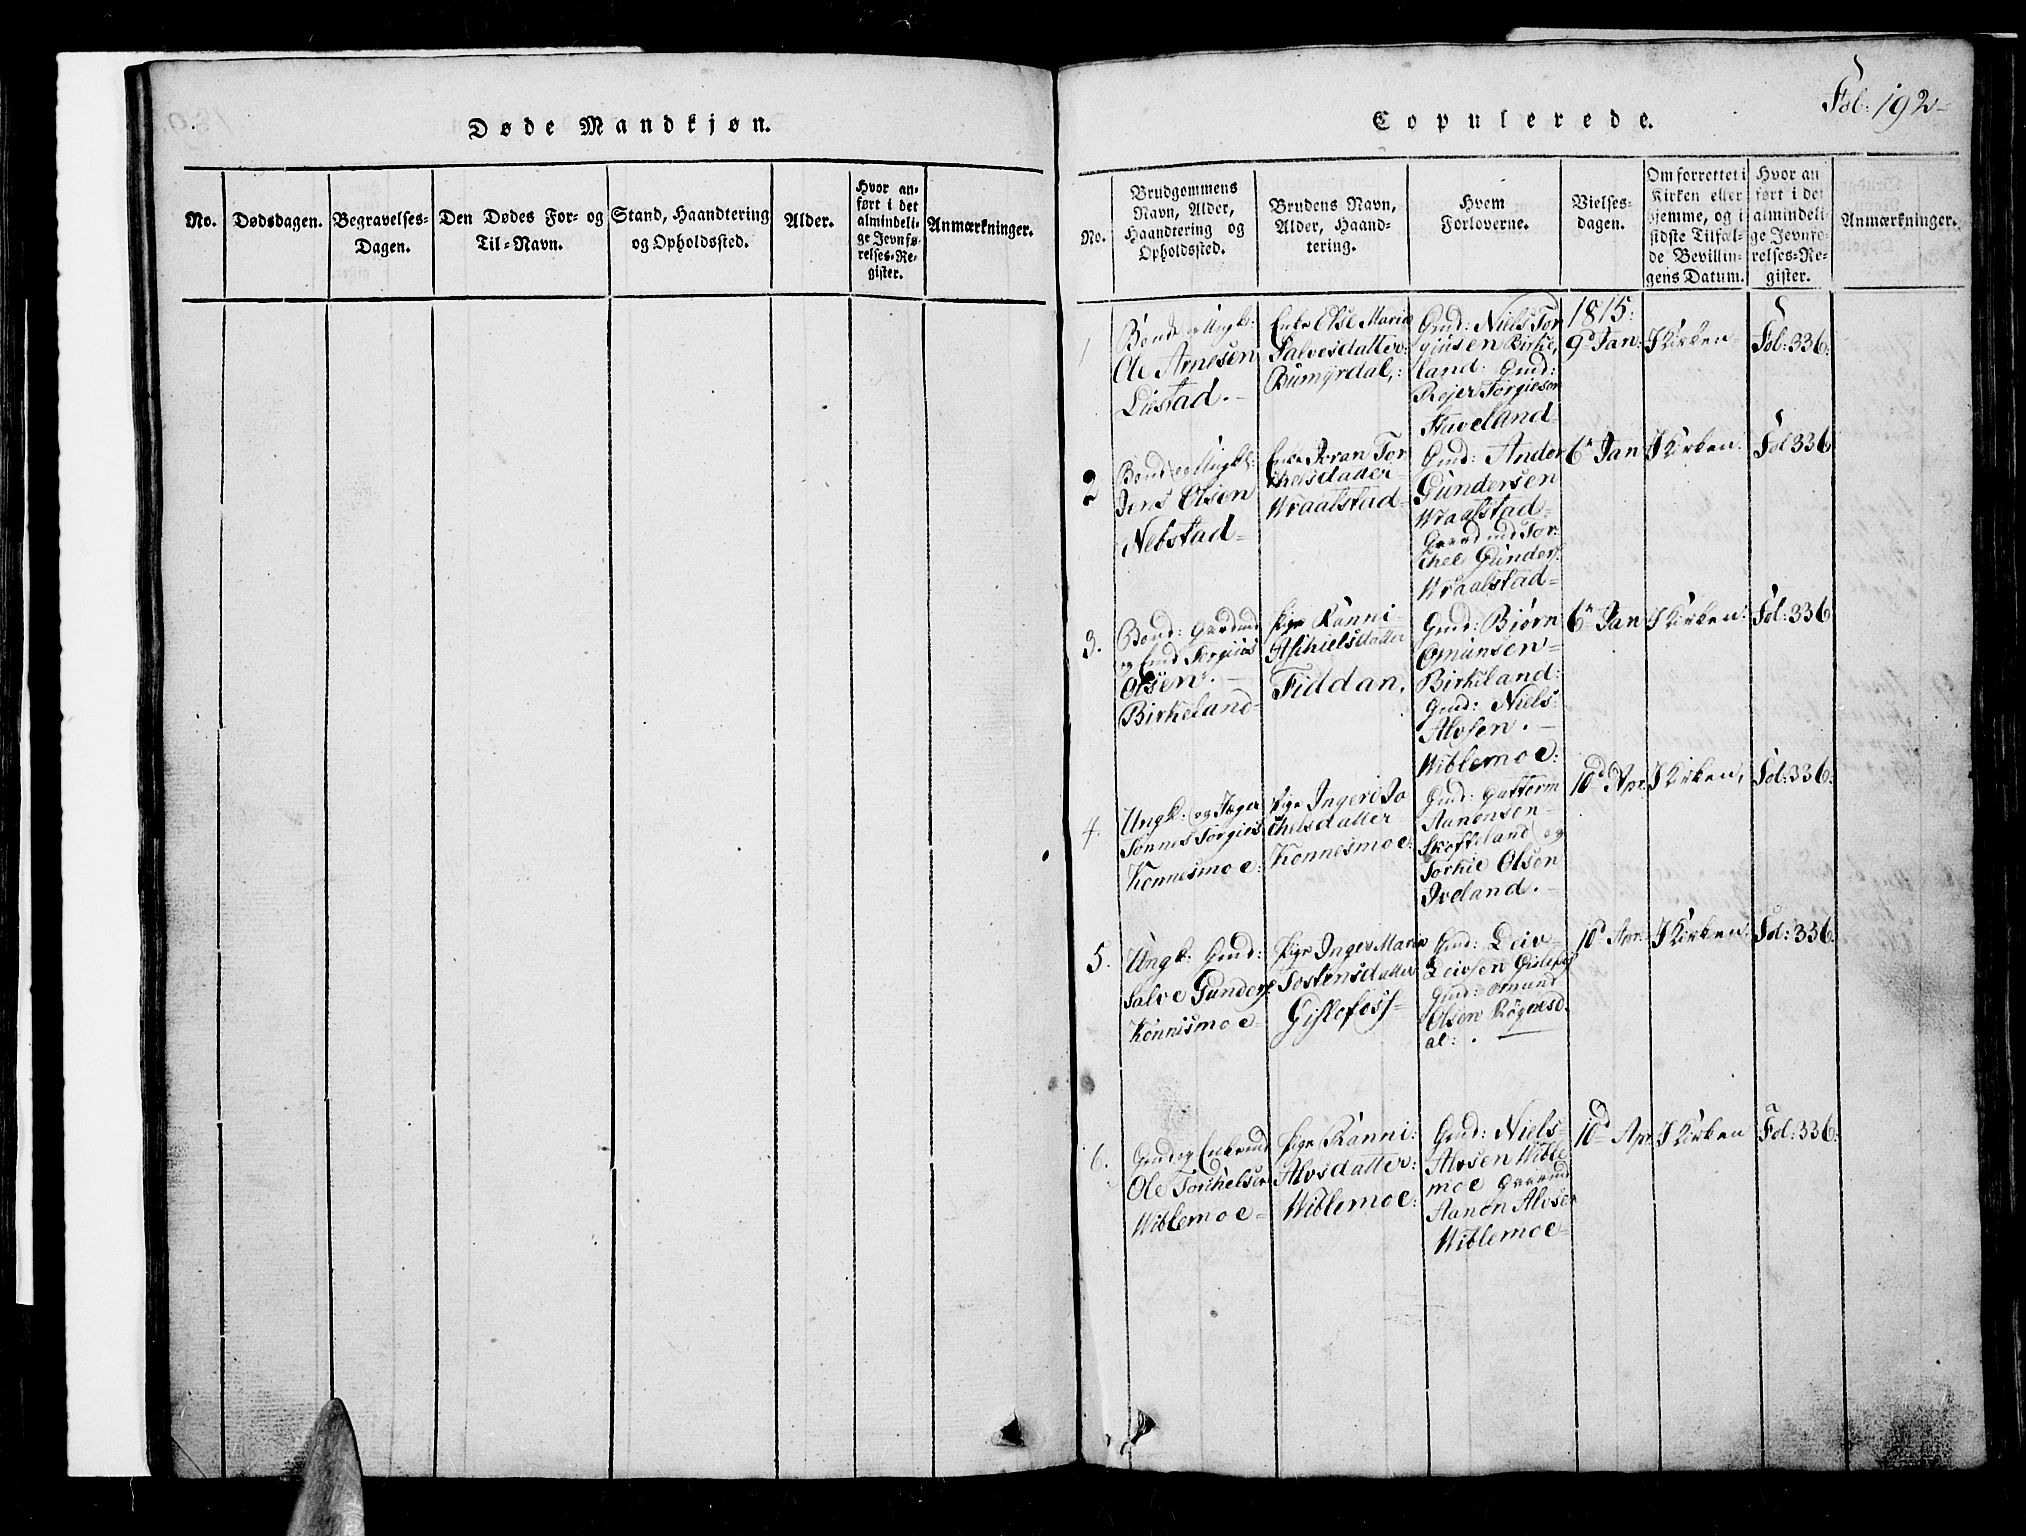 Døde Mandkjøn.
No.
Dødsdagen.
Begravelses-
Dagen.
Den Dødes For- og
Til-Navn.
Stand, Haandtering
og Opholdssted.
Alder.
Hvor an-
ført i det
almindeli-
ge Jevnfø-
relses-Re-
gister.
Anmærkninger.
Fol: 192
Copulerede.
No.
Brudgommens
Navn, Alder,
Haandtering og
Opholdssted.
Brudens Navn,
Alder, Haand-
tering.
Hvem
Forloverne.
Vielses-
dagen.
Om forrettet i
Kirken eller
hjemme, og i
sidste Tilfæl-
de Bevillin-
gens Datum.
Hvor an
ført i det
almindeli-
ge Jevnfø-
relses-Re-
gister.
Anmærkninger.
1
Bond og Ungk:
Ole Arnesen
Listad.
Enke Else Maria
Salvesdatter
Rumyrdal,
Gmd: Niels Tor
giusen Birke,
land. Gmd:
Rejer Torgiesen
Staveland
1815:
9d Jan:
I Kirken
Fol: 336:
2
Bond og Ungk:
Jens Olsen
Nebstad
Enke Joran Tor
chelsdatter
Wraalstad
Gmd: Ander
Gundersen
Wraalstad
Gaardmd Tor
chel Gunders:
Wraalstad
6 Jan
I Kirken.
Fol 336
3.
Bond: Gaardmd
og Emd Torgius
Olsen.
Birkeland
Pige Ranni
Aschielsdatter
Fiddan,
Gmd: Biørn
Omunsen
Birkeland:
Gmd: Niels
Alvsen.
Wiblemoe:
6 Jan
I Kirken.
Fol: 336
4.
Ungk: og Jæger
Tønnes Torgies
Konnesmoe:
Pige Ingeri Jo
chelsdatter
Konnesmoe:
Gmd: Guttorm
Aanonsen
Skofteland og
Torkie Olsen
Iveland.
10d Apr.
I Kirken,
Fol: 336:
5.
Ungk: Gmd:
Salve Gunders:
Konnismoe
Pige Inger Marie
Tostensdatter
Gislefoss
Gmd: Leiv
Leivsen Gislefos
Gmd: Omund
Olsen Røgnesd
al:
10d Apr:
I Kirken.
Fol: 336.
6.
Gmd og Enkemd
Ole Torchelsen
Wiblemoe
Pige Ranni:
Alvsdatter:
Wiblemoe:
Gmd: Niels
Alvsen Wible
moe Gaarmd
Aanon Alvsen
Wiblemoe
10d Apr.
I Kirken
Fol: 336: